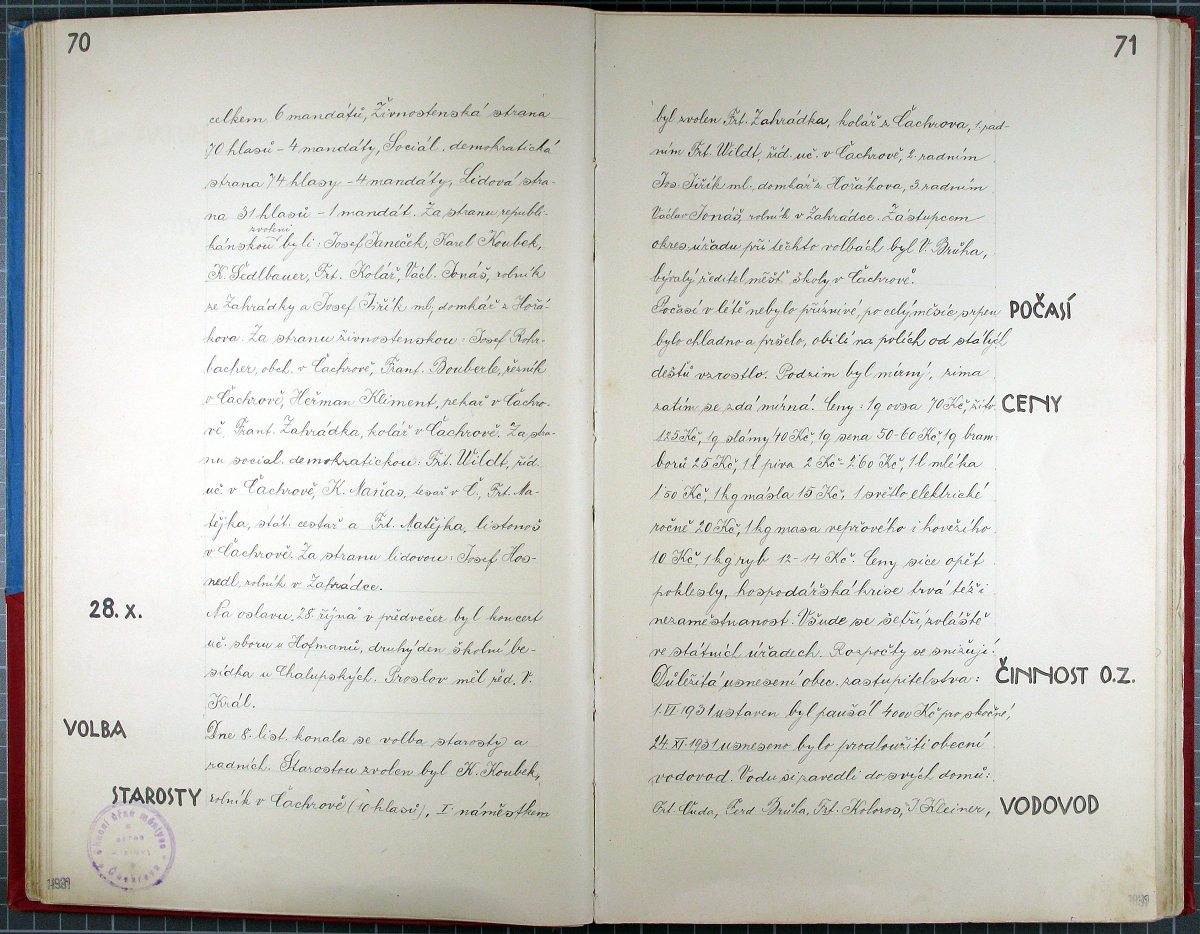 70
celkem 6 mandátů, Živnostenská strana
70 hlasů - 4 mandáty, Sociál. demokratická
strana 74 hlasy - 4 mandáty, Lidová stra-
na 31 hlasů - 1 mandát. Za stranu republi-
zvoleni
kánskou byli: Josef Janeček, Karel Koubek,
K. Sedlbauer, Frt. Kolář, Václ. Jonáš, rolník
ze Zahrádky a Josef Jiřík ml, domkář z Hořá-
kova. Za stranu živnostenskou: Josef Rohr-
bacher, obch. v Čachrově, Frant. Bouberle, řezník
v Čachrově, Heřman Kliment, pekař v Čachro-
vě, Frant. Zahrádka, kolář v Čachrově. Za stra-
nu sociál. demokratickou: Frt. Wildt, říd.
uč. v Čachrově, K. Naňas, tesař v Č., Frt. Ma-
tějka, stát. cestář a Frt. Matějka, listonoš
v Čachrově. Za stranu lidovou: Josef Hos-
nedl, rolník v Zahrádce.
28. X.
Na oslavu 28. října v předvečer byl koncert
uč. sboru u Hofmanů, druhý den školní be-
sídka u Chalupských. Proslov měl řed. V.
Král.
VOLBA
Dne 8. list. konala se volba starosty a
radních. Starostou zvolen byl K. Koubek,
STAROSTY
rolník v Čachrově (10 hlasů), I. náměstkem
1931
71
byl zvolen Frt. Zahrádka, kolář z Čachrova, 1. rad-
ním Frt. Wildt, říd. uč. v Čachrově, 2. radním
Jos. Jiřík ml., domkář z Hořákova, 3. radním
Václav Jonáš, rolník v Zahrádce. Zástupcem
okres. úřadu při těchto volbách byl V. Brůha,
bývalý ředitel měšť. školy v Čachrově.
Počasí v létě nebylo příznivé, po celý měsíc srpen
POČASÍ
bylo chladno a pršelo, obilí na polích od stálých
dešťů vzrostlo. Podzim byl mírný, zima
zatím se zdá mírná. Ceny: 1 q ovsa 70 Kč, žito
CENY
125 Kč, 1q slámy 40 Kč, 1q sena 50-60 Kč, 1q bram-
borů 25 Kč, 1 l piva 2 Kč - 2.60 Kč, 1 l mléka
1.50 Kč, 1 kg másla 15 Kč, 1 světlo elektrické
ročně 20 Kč, 1 kg masa vepřového i hovězího
10 Kč, 1 kg ryb 12-14 Kč. Ceny sice opět
poklesly, hospodářská krise trvá též i
nezaměstnanost. Všude se šetří, zvláště
ve státních úřadech. Rozpočty se snižují.
Důležitá usnesení obec. zastupitelstva:
ČINNOST O.Z.
1. VI. 1931 ustaven byl paušál 4000 Kč pro skočné,
24. XI. 1931 usneseno bylo prodloužiti obecní
vodovod. Vodu si zavedli do svých domů:
Frt. Čuda, Ferd. Brůha, Frt. Koloros, J. Kleiner,
VODOVOD